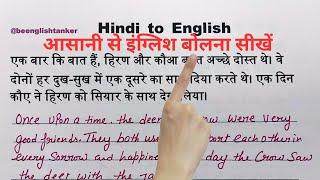 Hindi to English
@beenglishtanker
आसानी से इंग्लिश बोलना सीखें
एक बार कि बात हैं, हिरण और कौआ अच्छे दोस्त थे। वे
दोनों हर दुख-सुख में एक दूसरे का सा दिया करते थे। एक दिन
कौए ने हिरण को सियार के साथ दे लिया।
Once upon a time, the deer were very
good friends. They both us port each other in
every sorrow and happin day the Crow saw
the deer with the